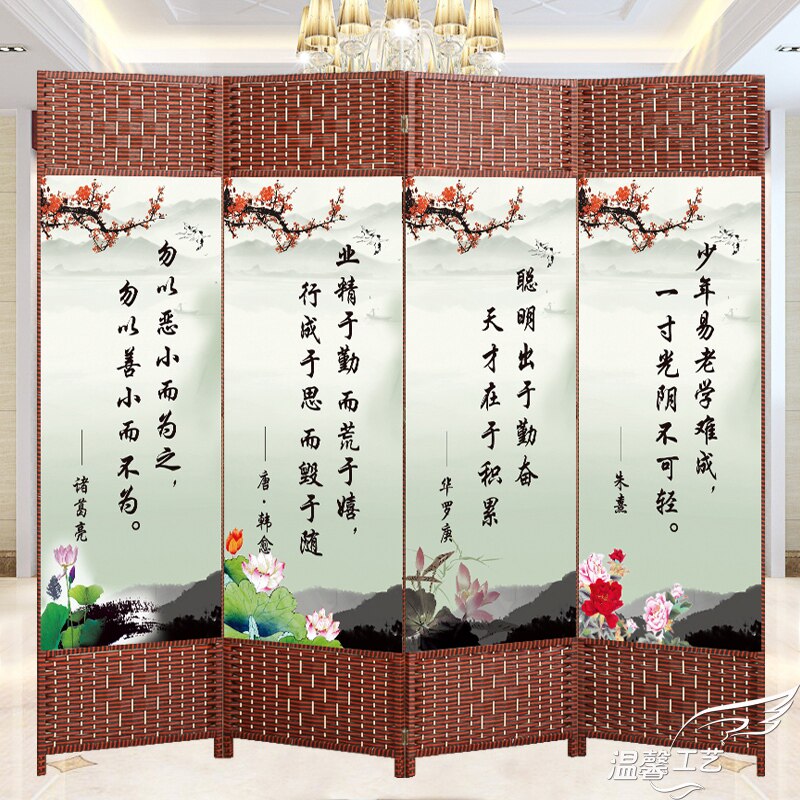 少年易老学难成，
一寸光阴不可轻。
——朱熹
聪明出于勤奋
天才在于积累
——华罗庚
业精于勤 而荒于嬉，
行成于思 而毁于随
——唐·韩愈
勿以恶小而为之，
勿以善小而不为。
——诸葛亮
温馨工艺